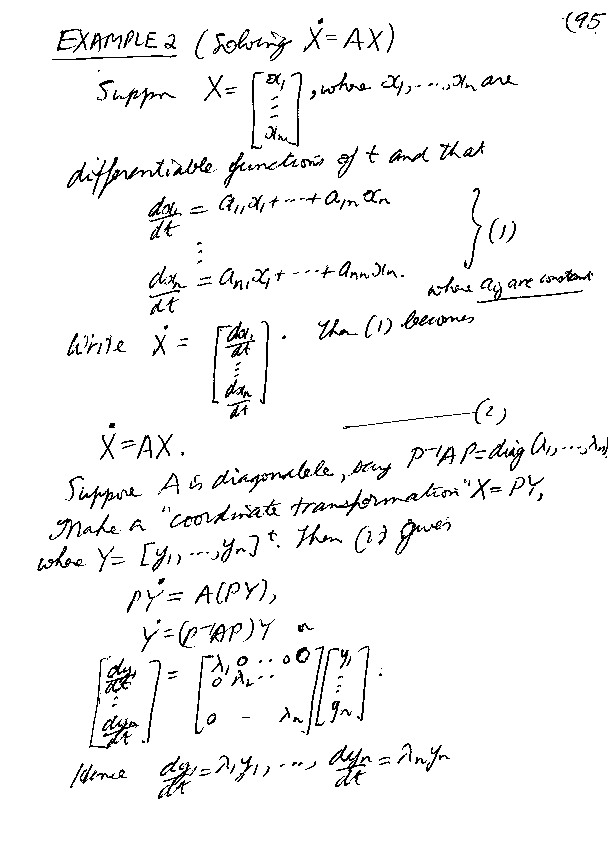 (95
EXAMPLE 2 (Solving Ẋ = AX)
Suppose X = [x₁ ⋮ xₙ], where x₁, ..., xₙ are
differentiable functions of t and that
dx₁/dt = a₁₁x₁ + ... + a₁ₙxₙ
⋮ } (1)
dxₙ/dt = aₙ₁x₁ + ... + aₙₙxₙ.
where aᵢⱼ are constant
Write Ẋ = [dx₁/dt ⋮ dxₙ/dt]. Then (1) becomes
Ẋ = AX. ——— (2)
Suppose A is diagonalable, say P⁻¹AP = diag(λ₁, ..., λₙ)
Make a "coordinate transformation" X = PY,
where Y = [y₁, ..., yₙ]ᵗ. Then (2) gives
PẎ = A(PY),
Ẏ = (P⁻¹AP)Y or
[dy₁/dt ⋮ dyₙ/dt] = [λ₁ 0 ·· 0 0 0 λ₂ ·· 0 - λₙ] [y₁ ⋮ yₙ].
Hence dy₁/dt = λ₁y₁, ..., dyₙ/dt = λₙyₙ